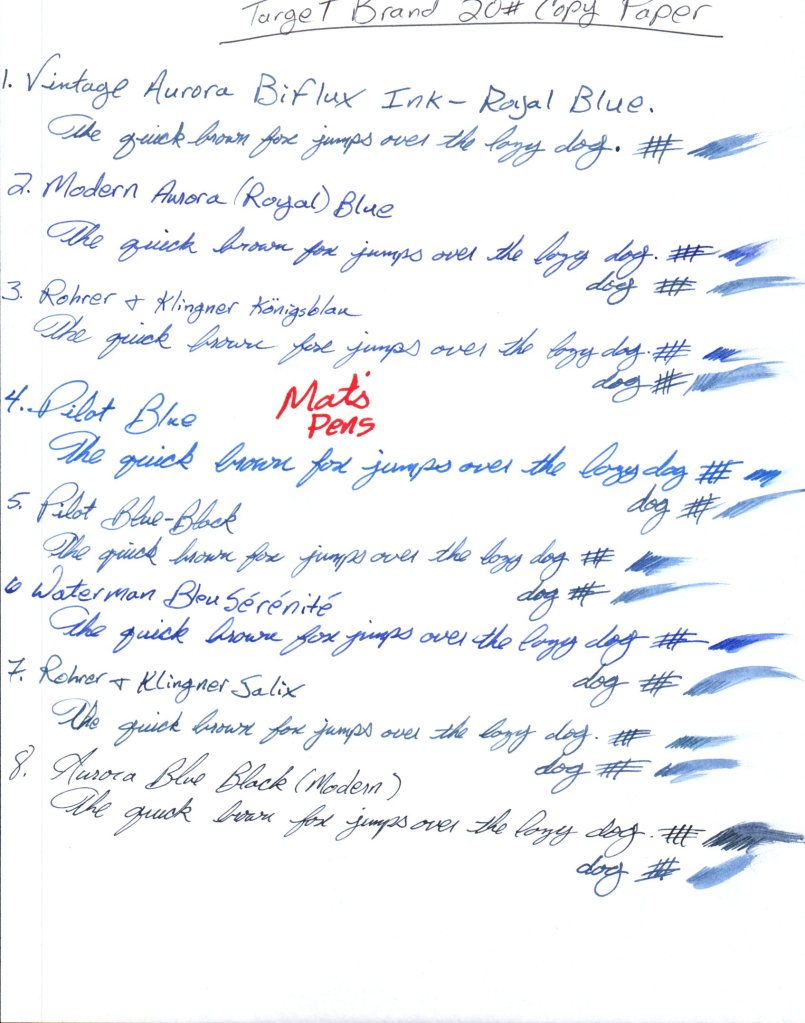 Target Brand 20# Copy Paper
1. Vintage Aurora Biflux Ink - Royal Blue.
The quick brown fox jumps over the lazy dog. #
2. Modern Aurora (Royal) Blue
The quick brown fox jumps over the lazy dog. #
dog #
3. Rohrer + Klingner Königsblau
The quick brown fox jumps over the lazy dog. #
dog #
4. Pilot Blue
Mat's
Pens
The quick brown fox jumps over the lazy dog #
dog #
5. Pilot Blue-Black
The quick brown fox jumps over the lazy dog #
dog #
6 Waterman Bleu Sérénité
The quick brown fox jumps over the lazy dog #
dog #
7. Rohrer + Klingner Salix
The quick brown fox jumps over the lazy dog. #
dog #
8. Aurora Blue Black (Modern)
The quick brown fox jumps over the lazy dog. #
dog #